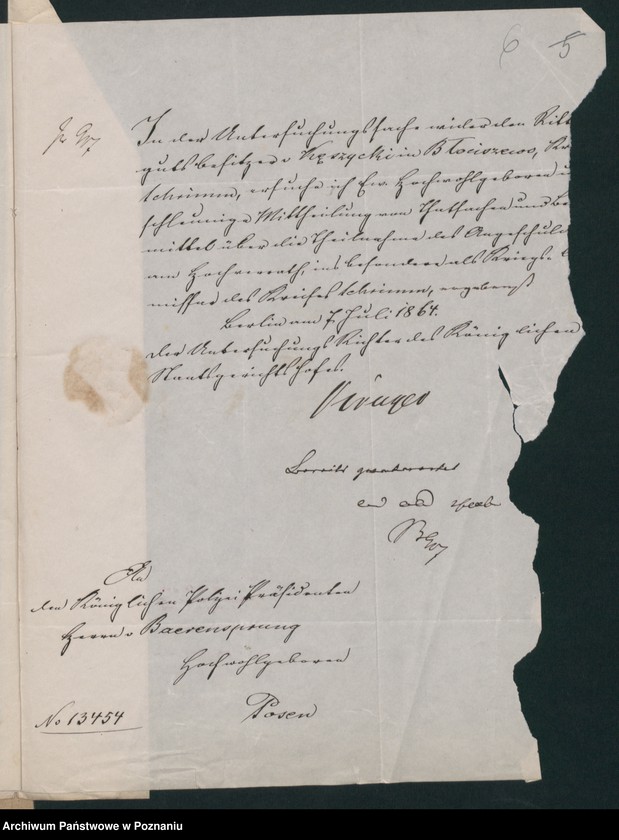 6 5
In der Untersuchungssache wider den Ritt
gutsbesitzer v Kęszycki in Błociszewo, Kr
Schrimm, ersuche ich Ew. Hochwohlgeboren u
schleunige Mittheilung von Thatsachen und Be
mittel über die Theilnahme des Angeschuld
am Hochverrath, insbesondere als Kriegs
missar des Kreises Schrimm, ergebenst
Berlin am 7 Juli 1864.
Der Untersuchungs Richter des Königlichen
Staatsgerichtshofes.
Krüger
Bereits geantwortet
An
den Königlichen Polizei Präsidenten
Herrn v Baerensprung
Hochwohlgeboren
Posen
No 13454
Archiwum Państwowe w Poznaniu